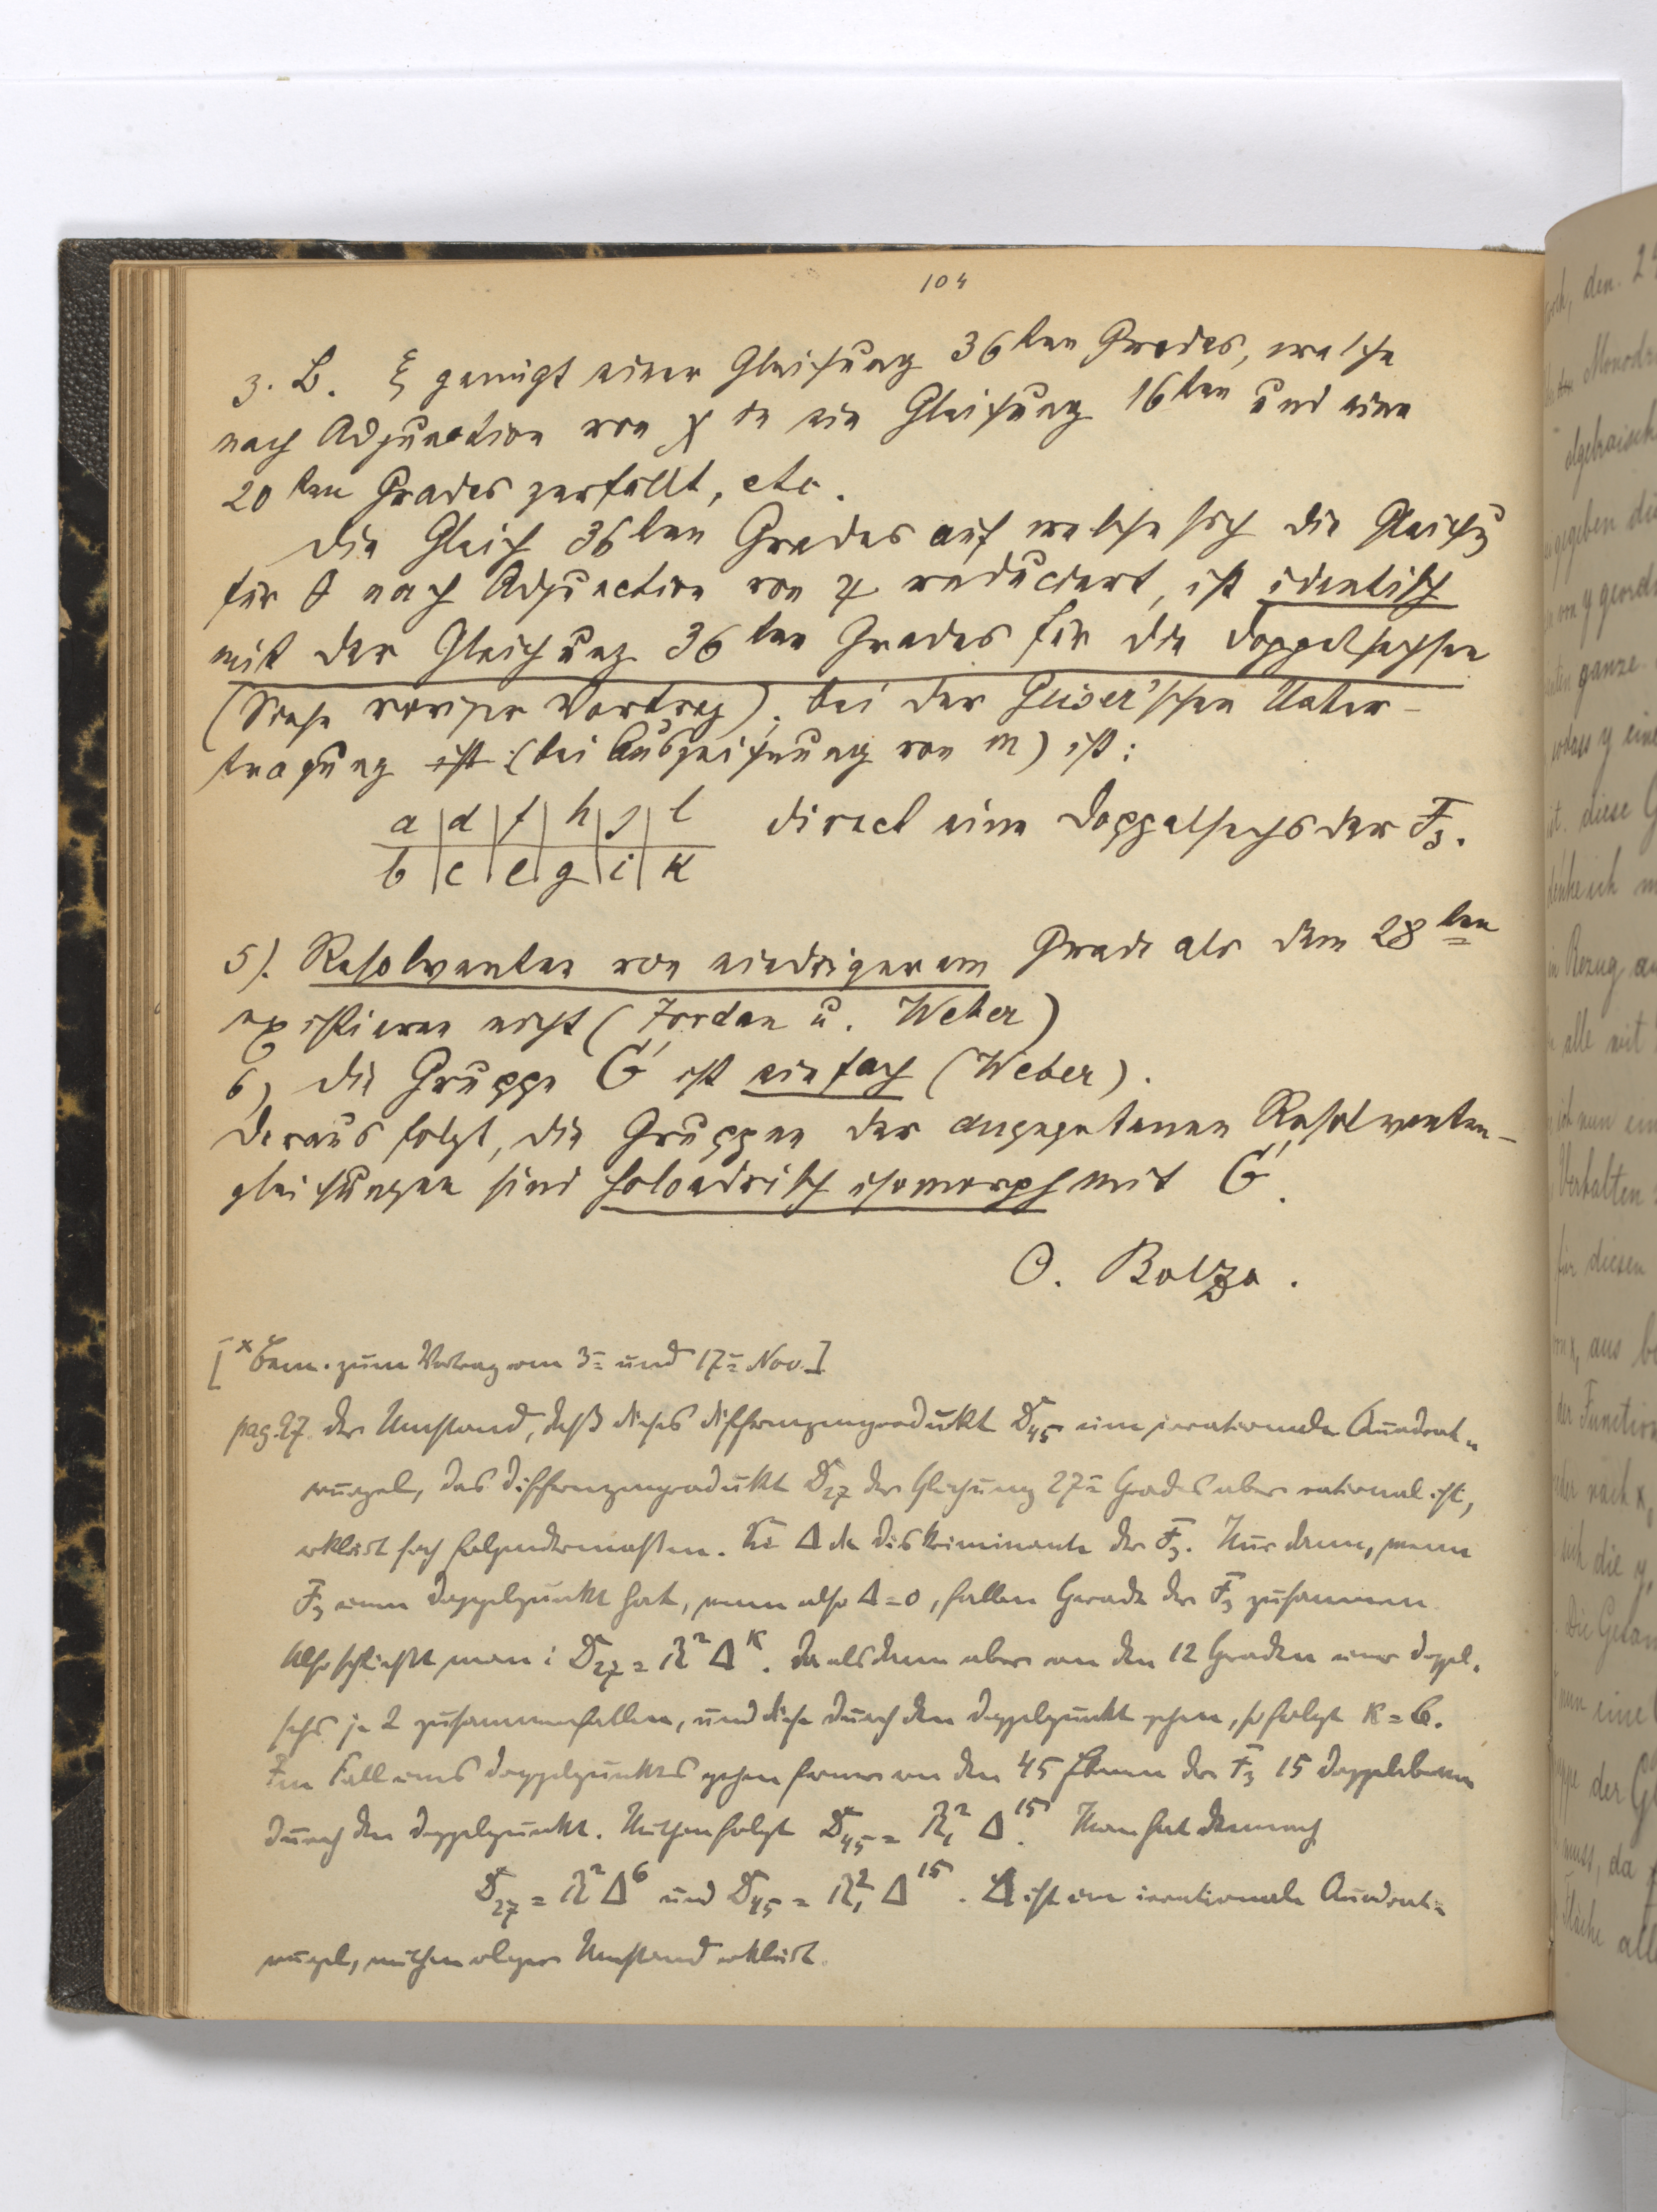 104
z. B. ξ genügt einer Gleichung 36ten Grades, welche
nach Adjunction von χ in eine Gleichung 16ten und eine
20ten Grades zerfällt, etc.
Die Gleich 36ten Grades auf welche sich die Gleichg
für θ nach Adjunction von χ reducirt, ist identisch
mit der Gleichung 36ten Grades für die Doppelsechsen
(Siehe voriger Vortrag); bei der Geiser'schen Ueber-
tragung ist (bei Auszeichnung von m) ist:
a | d | f | h | j | l direct eine Doppelsechs der F3.
b | c | e | g | i | k
5). Resolventen von niedrigerem Grade als dem 28ten
existieren nicht (Jordan u. Weber)
6) Die Gruppe G' ist einfach (Weber).
Daraus folgt, die Gruppen der angegebenen Resolventen-
gleichungen sind holoedrisch isomorph mit G'.
O. Bolza.
[x Bem. zum Vortrag vom 3= und 17= Nov.]
pag. 27. Der Umstand, daß dieses Differenzenprodukt D45 eine irrationale Quadrat-
wurzel, das Differenzenprodukt D27 der Gleichung 27= Grades aber rational ist,
erklärt sich folgendermaßen. Sei Δ die Diskriminante der F3. Nur dann, wenn
F3 einen Doppelpunkt hat, wenn also Δ=0, fallen Gerade der F3 zusammen.
Also schließt man: D27 = R² Δ^K. Da alsdann aber von den 12 Geraden einer Doppel-
sechs je 2 zusammenfallen, und diese durch den Doppelpunkt gehen, so folgt K=6.
Im Fall eines Doppelpunktes gehen ferner von den 45 Ebenen der F3 15 Doppelebenen
durch den Doppelpunkt. Mithin folgt D45 = R1² Δ^15. Man hat demnach
D27 = R² Δ^6 und D45 = R1² Δ^15. Δ ist eine irrationale Quadrat-
wurzel, mithin obiger Umstand erklärt.